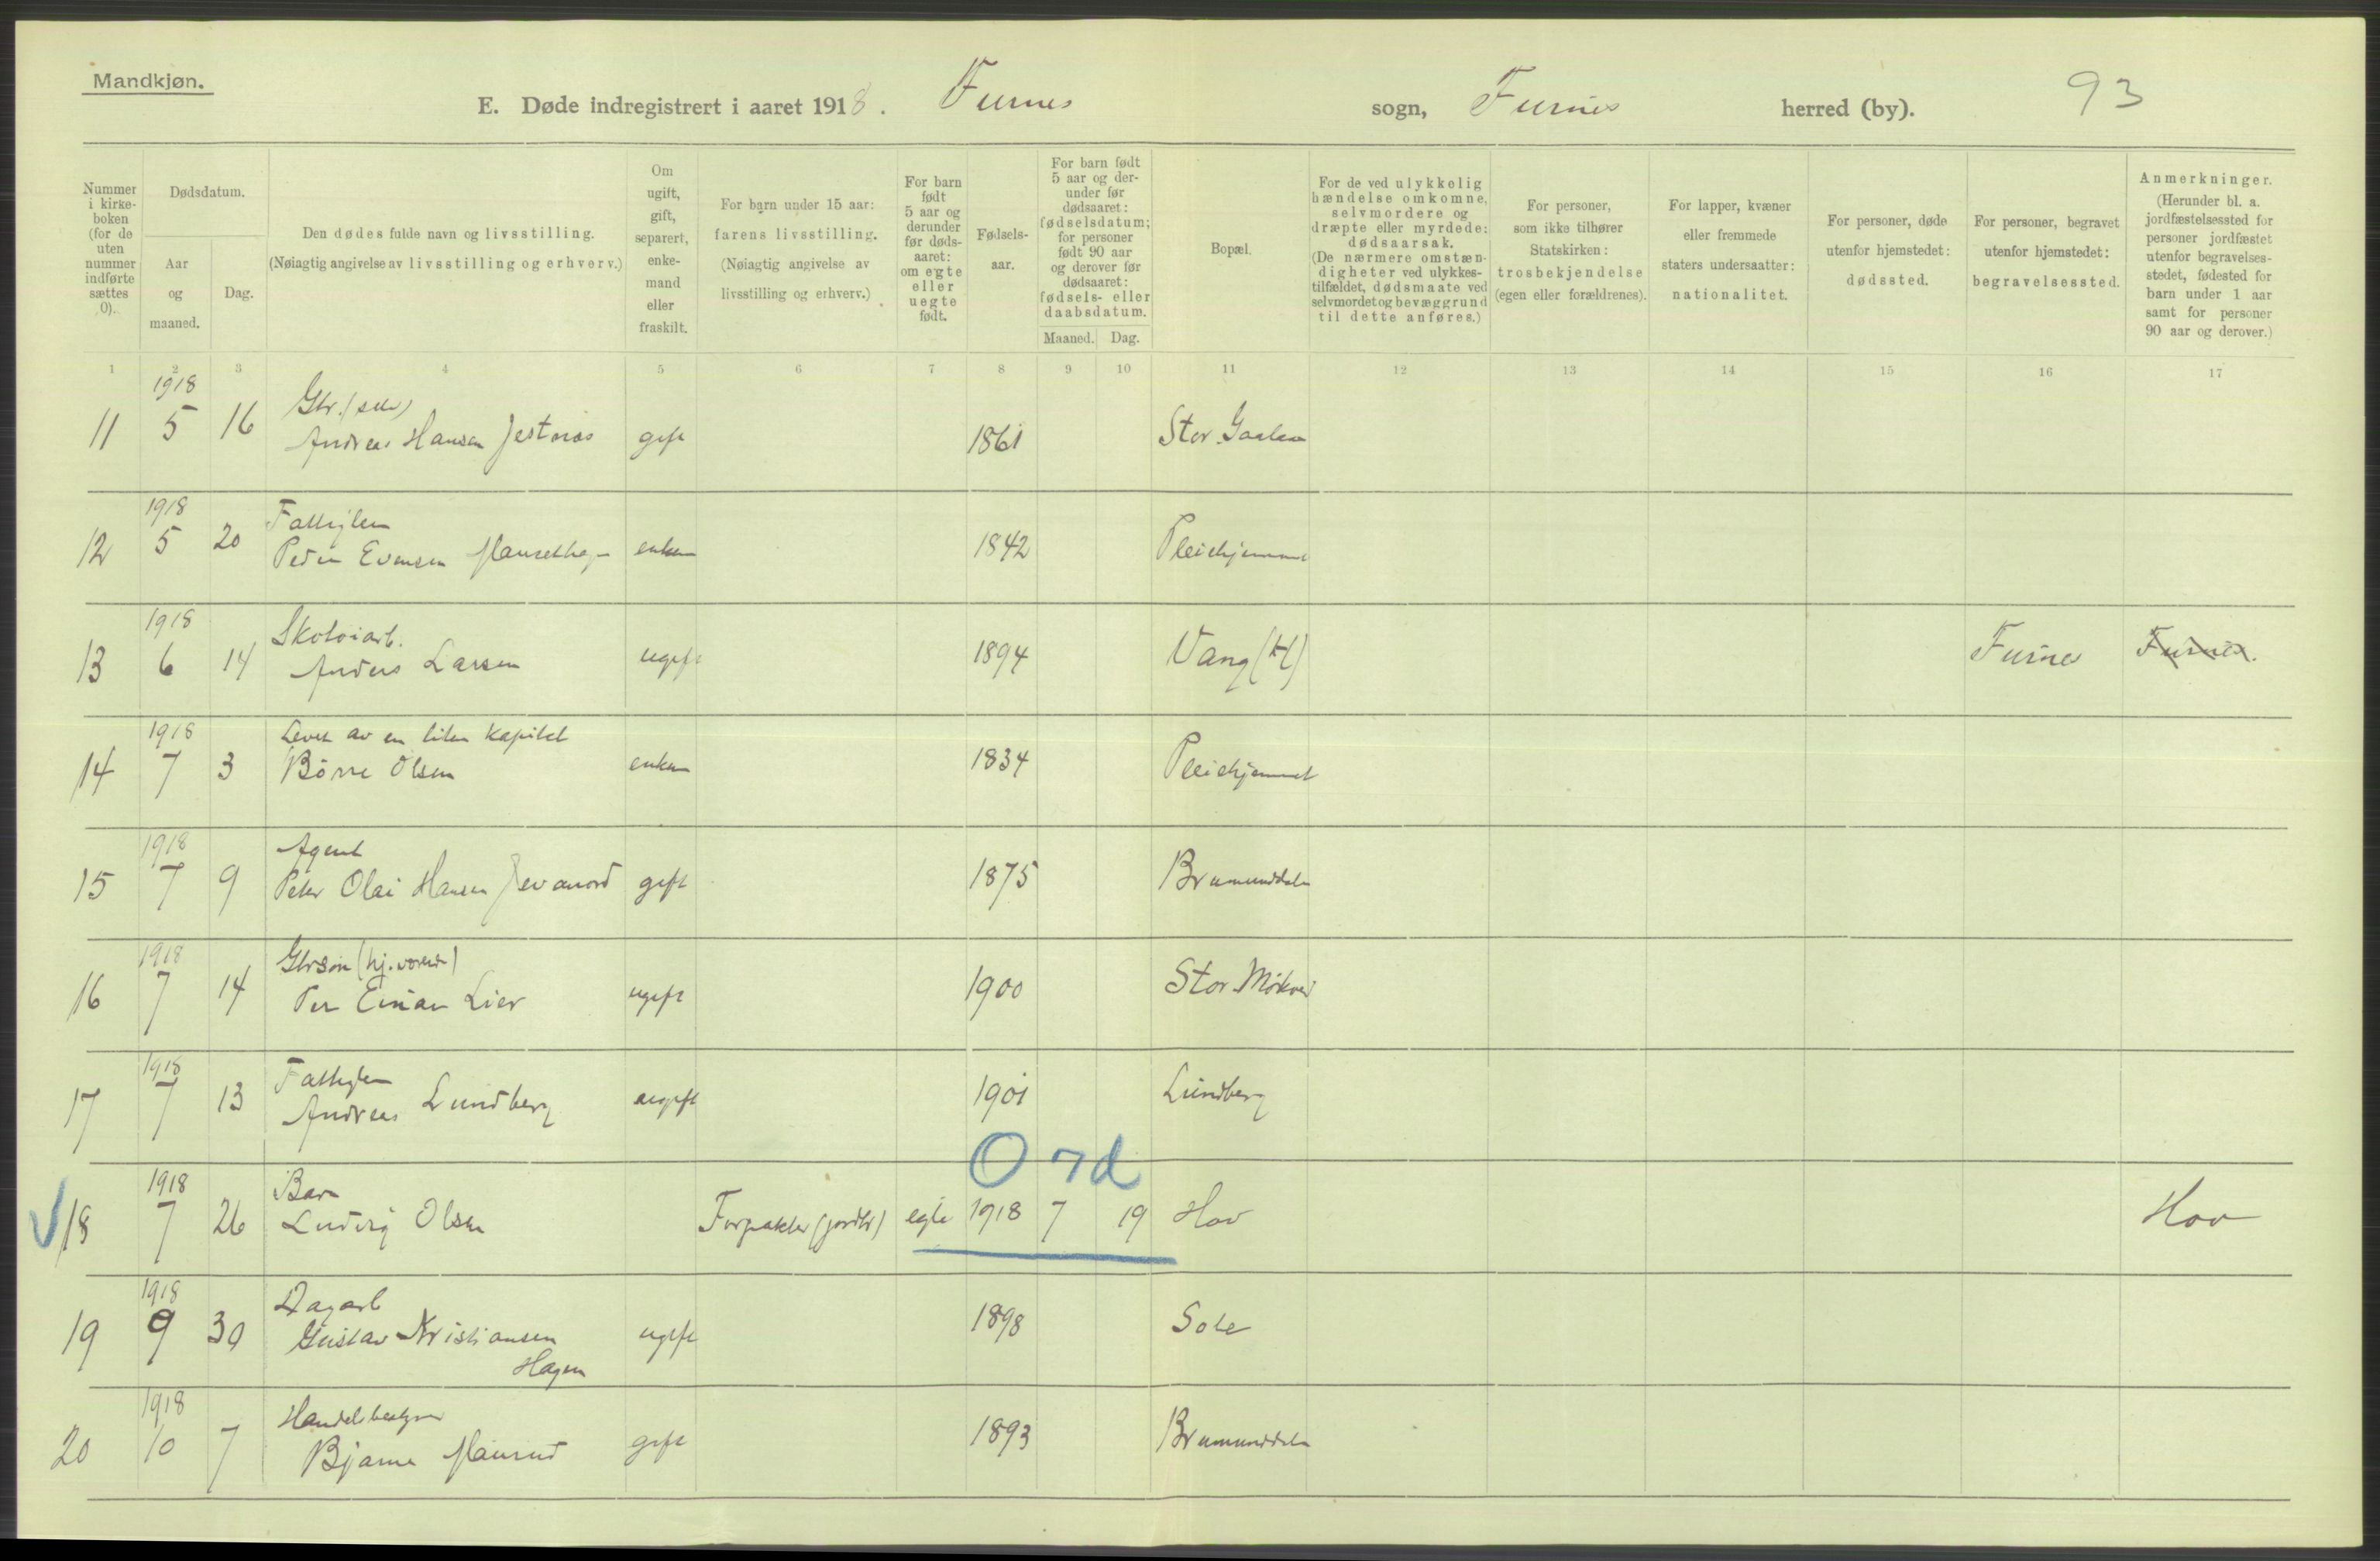 Mandkjøn.
E. Døde indregistrert i aaret 1918. Furnes sogn, Furnes herred (by). 93
Nummer i kirke-boken (for de uten nummer indførte sættes 0).
Dødsdatum.
Aar og maaned.
Dag.
Den dødes fulde navn og livsstilling.
(Nøiagtig angivelse av livsstilling og erhverv.)
Om ugift, gift, separert, enke-mand eller fraskilt.
For barn under 15 aar: farens livsstilling. (Nøiagtig angivelse av livsstilling og erhverv.)
For barn født 5 aar og derunder før døds-aaret: om egte eller uegte født.
Fødsels-aar.
For barn født 5 aar og der-under før dødsaaret: fødselsdatum; for personer født 90 aar og derover før dødsaaret: fødsels- eller daabsdatum.
Maaned. Dag.
Bopæl.
For de ved ulykkelig hændelse omkomne, selvmordere og dræpte eller myrdede: dødsaarsak. (De nærmere omstæn-digheter ved ulykkes-tilfældet, dødsmaate ved selvmordet og bevæggrund til dette anføres.)
For personer, som ikke tilhører Statskirken: trosbekjendelse (egen eller forældrenes).
For lapper, kvæner eller fremmede staters undersaatter: nationalitet.
For personer, døde utenfor hjemstedet: dødssted.
For personer, begravet utenfor hjemstedet: begravelsessted.
Anmerkninger. (Herunder bl. a. jordfæstelsessted for personer jordfæstet utenfor begravelses-stedet, fødested for barn under 1 aar samt for personer 90 aar og derover.)
1 2 3 4 5 6 7 8 9 10 11 12 13 14 15 16 17
1918 Gbr. (selv)
11 5 16 Andreas Hansen gift 1861 Stor
1918
12 5 20 Peder Evensen enkem 1842 Pleiehjemmet
1918
13 6 14 Anders Larsen ugift 1894 Vang (H) Furnes Furnes.
1918 Lever av en liten kapital
14 7 3 Børre Olsen enkem 1834 Pleiehjemmet
1918 Agent
15 7 9 Peter Olai Hansen gift 1875 Brumunddalen
1918 Gbrsøn
16 7 14 Per Einar Lier ugift 1900 Stor
1918
17 7 13 Andreas Lundberg ugift 1901 Lundberg
0 7d
1918 Barn
18 7 26 Ludvig Olsen Forpakter (jordbr) egte 1918 7 19 Hov Hov
1918 Dagarb
19 9 30 Gustav Kristiansen ugift 1898
Hagen
1918 Handelsbestyrer
20 10 7 Bjarne gift 1893 Brumunddalen